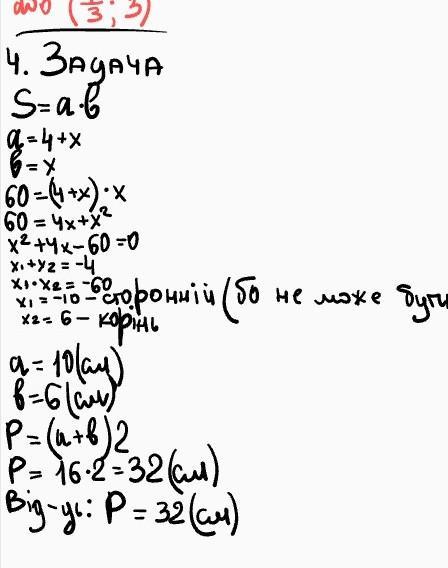 або (1/3; 3)
4. Задача
S=a·b
a=4+x
b=x
60=(4+x)·x
60=4x+x²
x²+4x-60=0
x₁+x₂=-4
x₁·x₂=-60
x₁=-10-сторонній (бо не може бути
x₂=6-корінь
a=10(см)
b=6(см)
P=(a+b)2
P=16·2=32(см)
Від-дь: P=32(см)